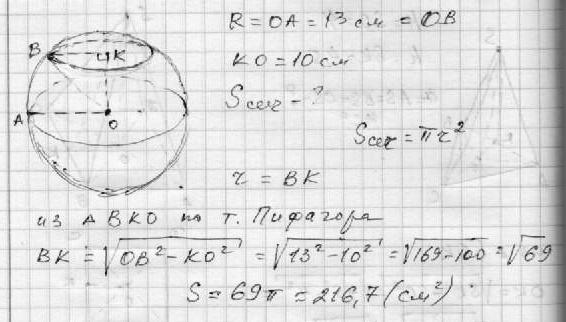 R = OA = 13 см = OB
KO = 10 см
Sсеч - ?
Sсеч = πr²
r = BK
из Δ BKO по т. Пифагора
BK = √(OB² - KO²) = √(13² - 10²) = √(169 - 100) = √69
S = 69π = 216,7 (см²)
B
K
A
O
S